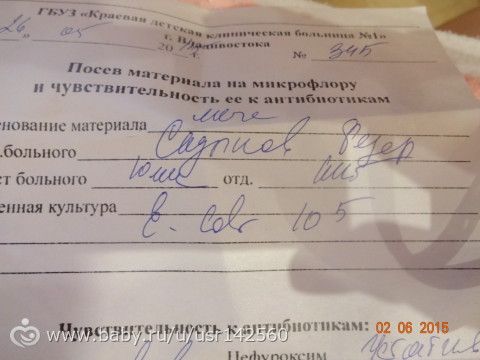 ГБУЗ «Краевая детская клиническая больница №1»
г. Владивостока
„26“ 05 20 № 345
Посев материала на микрофлору
и чувствительность ее к антибиотикам
енование материала моче
.больного
ст больного отд.
енная культура E. Coli 10 5
Чувствительность к антибиотикам:
Нефуроксим
www.baby.ru/u/usr142560
02 06 2015